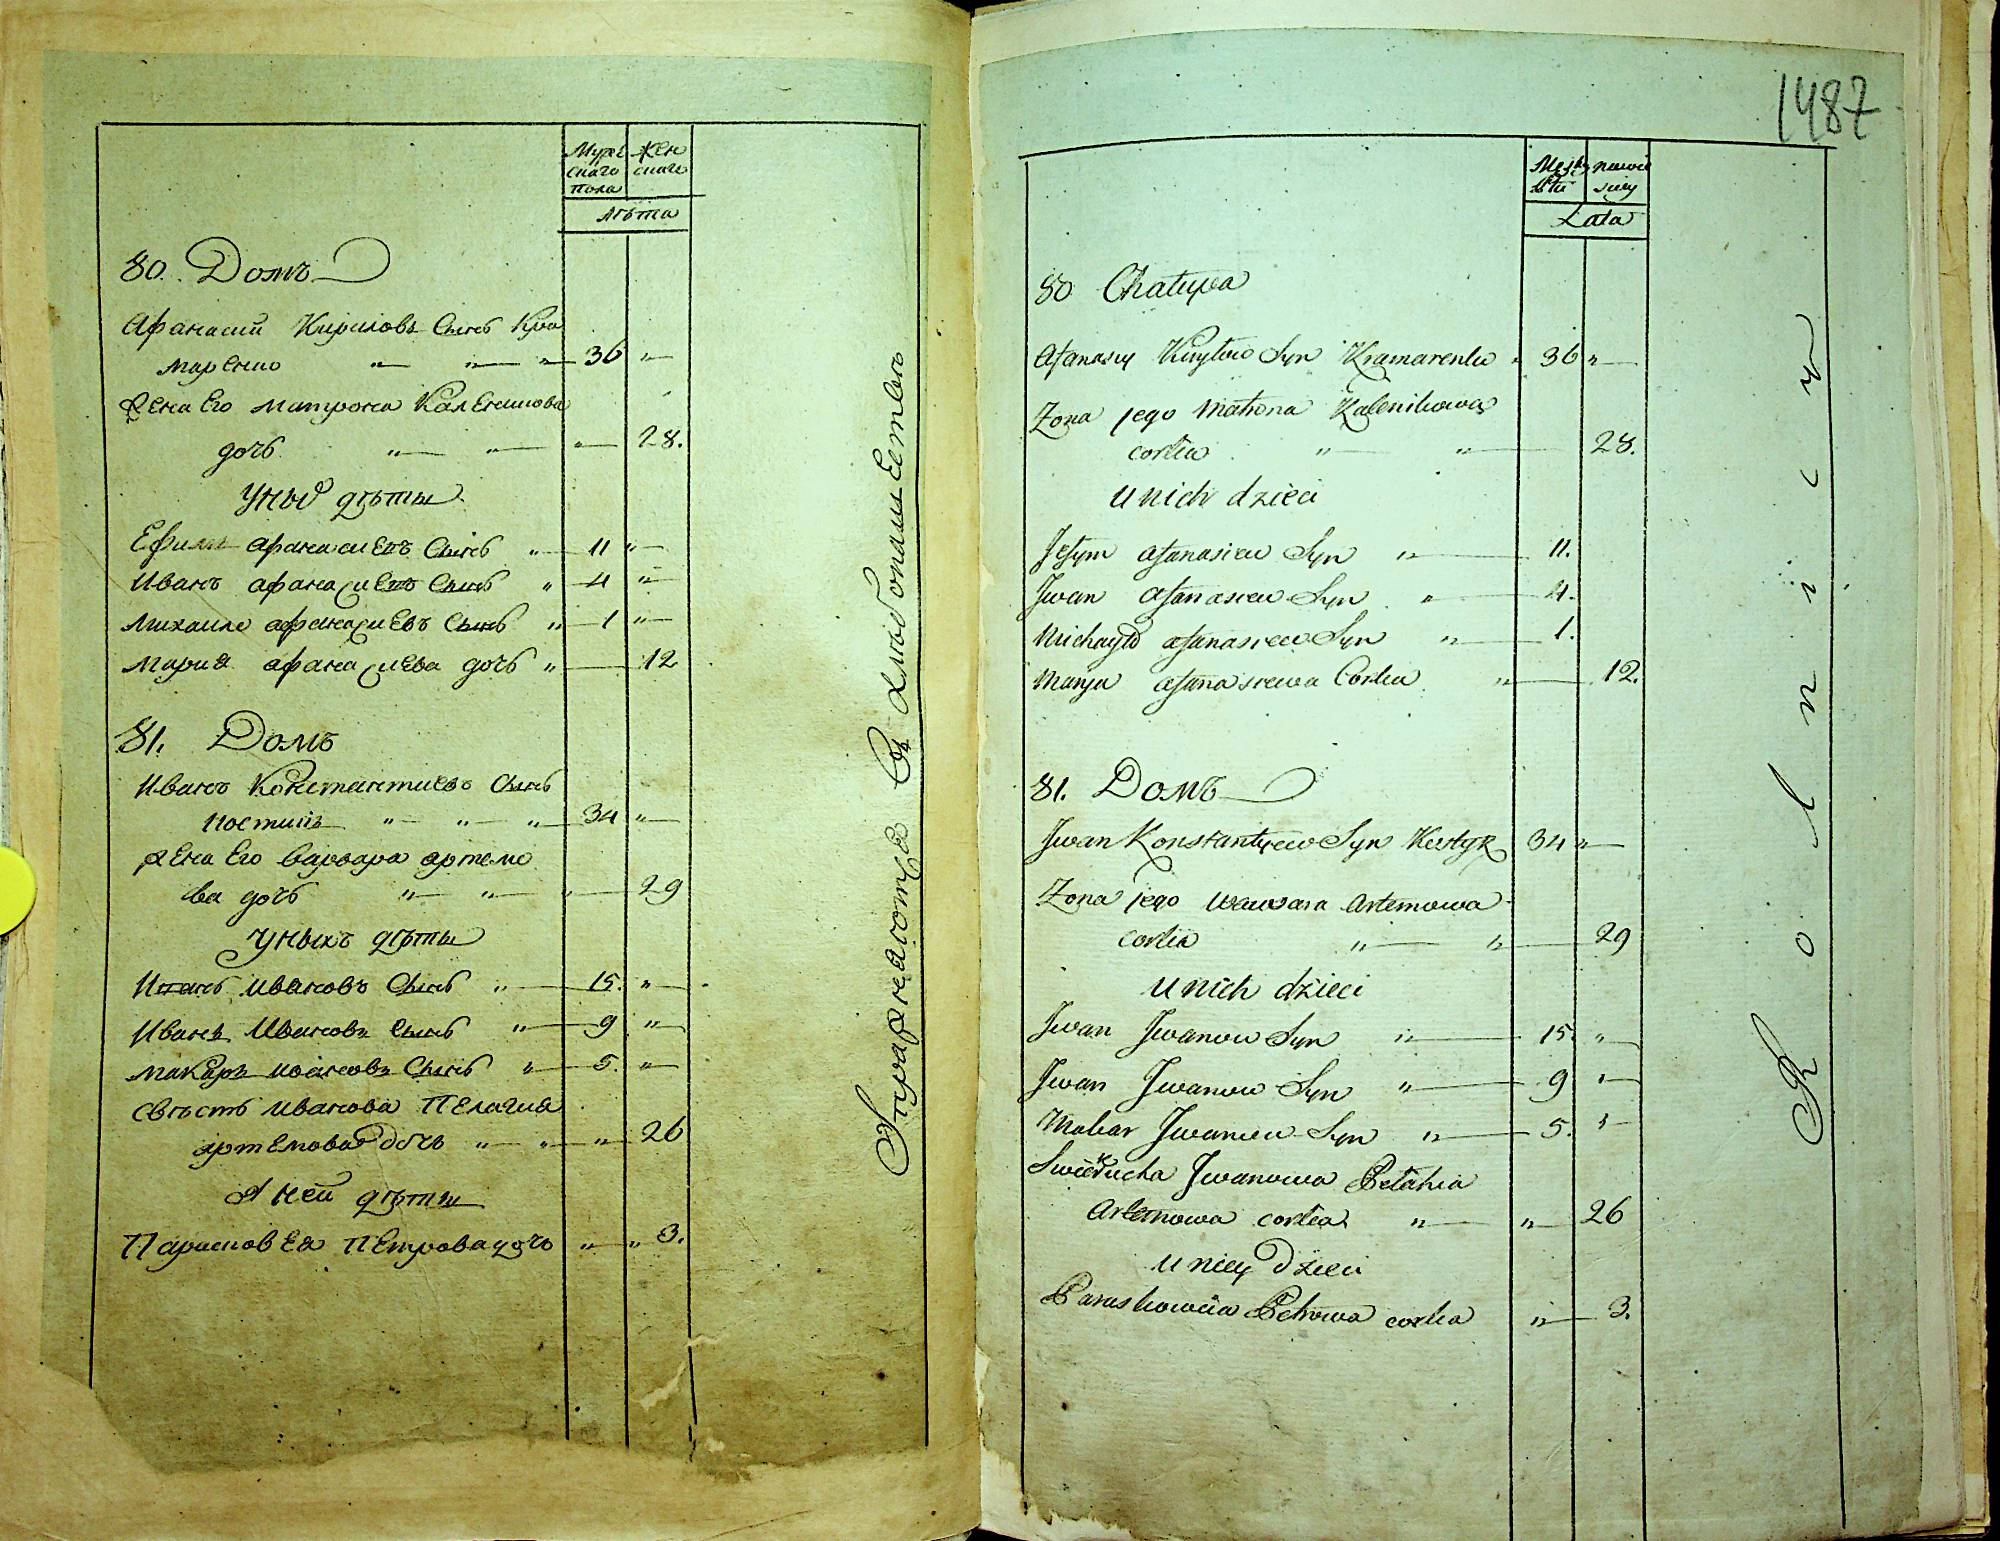 Мужескаго пола
Женскаго
Лѣта
80. Домъ
Афанасий Кириловъ Сынъ Кра
маренко " " " 36 "
Жена Его Матрона Каленикова
дочь " " " 28.
У ныхъ дѣты
Ефимъ Афанасиевъ Сынъ " 11 "
Иванъ Афанасиевъ Сынъ " 4 "
Михаило Афанасиевъ Сынъ " 1 "
Мария Афанасиева дочь " 12
81. Домъ
Иванъ Константиевъ Сынъ
" " " 34 "
Жена Его Варвара Артемо
ва дочь " " " 29
У ныхъ дѣты
Иванъ Ивановъ Сынъ " 15. "
Иванъ Ивановъ Сынъ " 9 "
Макаръ Ивановъ Сынъ " 5. "
Свѣсть Иванова Пелагия
Артемова дочь " " " 26
У ней дѣты
Парасковея Петрова дочь " " 3.
Упражняются Въ Хлѣбопашествѣ
1487
Lata
80 Chatupa
Afanasiy Kiryłow Syn Kramarenko " 36 "
Zona jego Matrona Kalenikowa
corka " " 28.
U nich dzieci
Jefym Afanasiew Syn " 11.
Jwan Afanasiew Syn " 4.
Michayło Afanasiew Syn " 1.
Marya Afanasiewa Corka " 12.
81. Домъ
Jwan Konstantyew Syn Kostyk 34 "
Zona jego Warwara Artemowa
corka " " 29
U nich dzieci
Jwan Jwanow Syn " 15. "
Jwan Jwanow Syn " 9 "
Makar Jwanow Syn " 5. "
Jwanowa Pelahia
Artemowa corka " " 26
U niey Dzieci
Paraskoweia Petrowa corka " 3.
Rolnicy